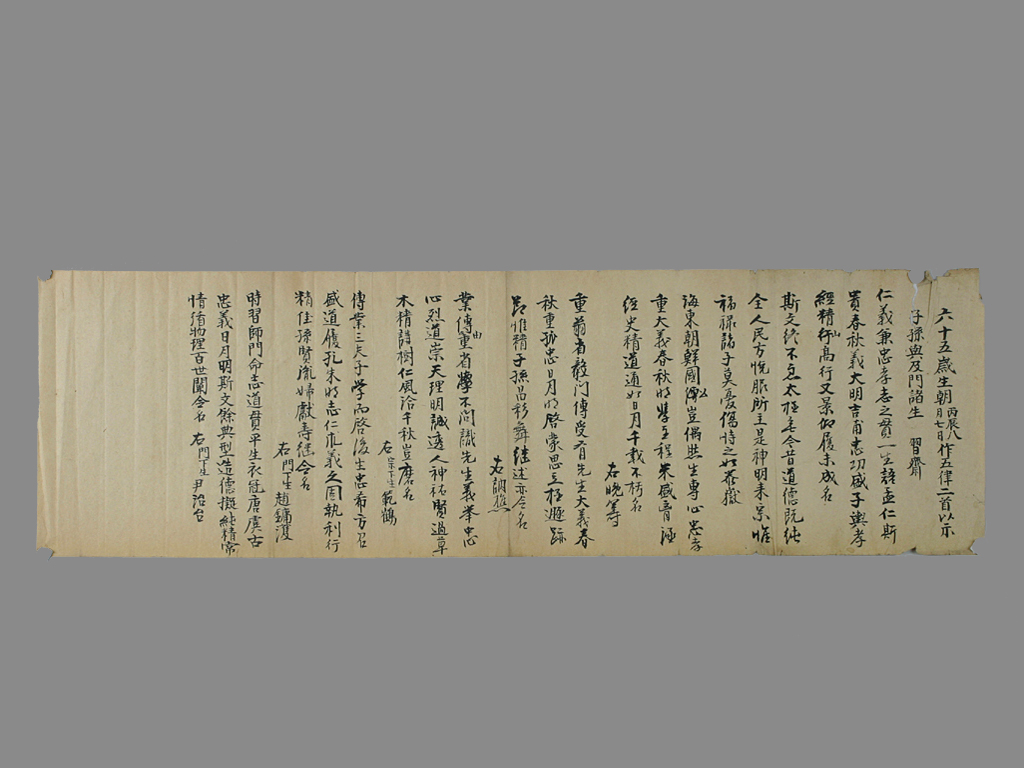 六十五歲生朝丙辰八月七日作五律二首以示
子孫與及門諸生 習齋
仁義兼忠孝志之貫一生諸孟仁斯
貫春秋義大明吉甫忠功盛子輿孝
經精行高行又景仰履未成名
斯文終不立太極古今昔道德既純
全人民方悅服所主是神明未景惟
福祿詒子莫憂傷詩之如泰嶽
海東朝鮮國豈偶然生專心忠孝
重大義春秋明學主程朱盛
經史精道通如日月千載不朽名
右晚翁
重翁省毅門傳受有先生大義春
秋重孤忠日月明啓蒙思立極遯跡
惟精子孫昌彩舞継述亦令名
右
業傳由重省學不問識先生義峯忠
心烈道崇天理明誠邊人神祐賢過草
木精詩樹仁風洽千秋豈磨名
右宗下生範鶴
傳業三夫子學而啓後生忠希方召
盛道履孔朱明志仁惟義之因執利行
精佳孫賢胤婦獻壽継令名
右門下生趙鏞
時習師門命志道貫平生衣冠唐虞古
忠義日月明斯文餘典型造德擬純精常
情循物理百世聞令名 右門下生尹治台